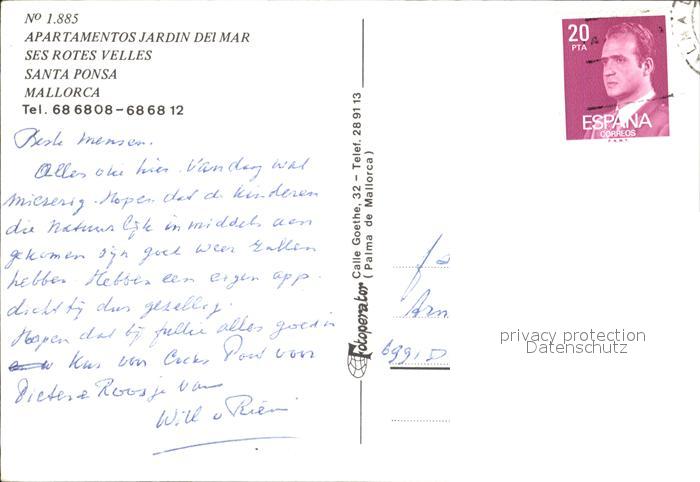 Nº 1.885
APARTAMENTOS JARDIN DEL MAR
SES ROTES VELLES
SANTA PONSA
MALLORCA
Tel. 686808-686812
Beste mensen.
Alles oke hier. Vandaag wat
miezerig. Hopen dat de kinderen
die natuurlijk inmiddels aan
gekomen zijn goed weer zullen
hebben. Hebben een eigen app.
dicht bij dus gezellig.
Hopen dat bij jullie alles goed is
Kus van Poul voor
Pieter & Roosje van
Will
Fotoperator Calle Goethe, 32 - Telef. 28 91 13
(Palma de Mallorca)
20
PTA
ESPAÑA
CORREOS
F.N.M.T.
Arn
6991 D
privacy protection
Datenschutz